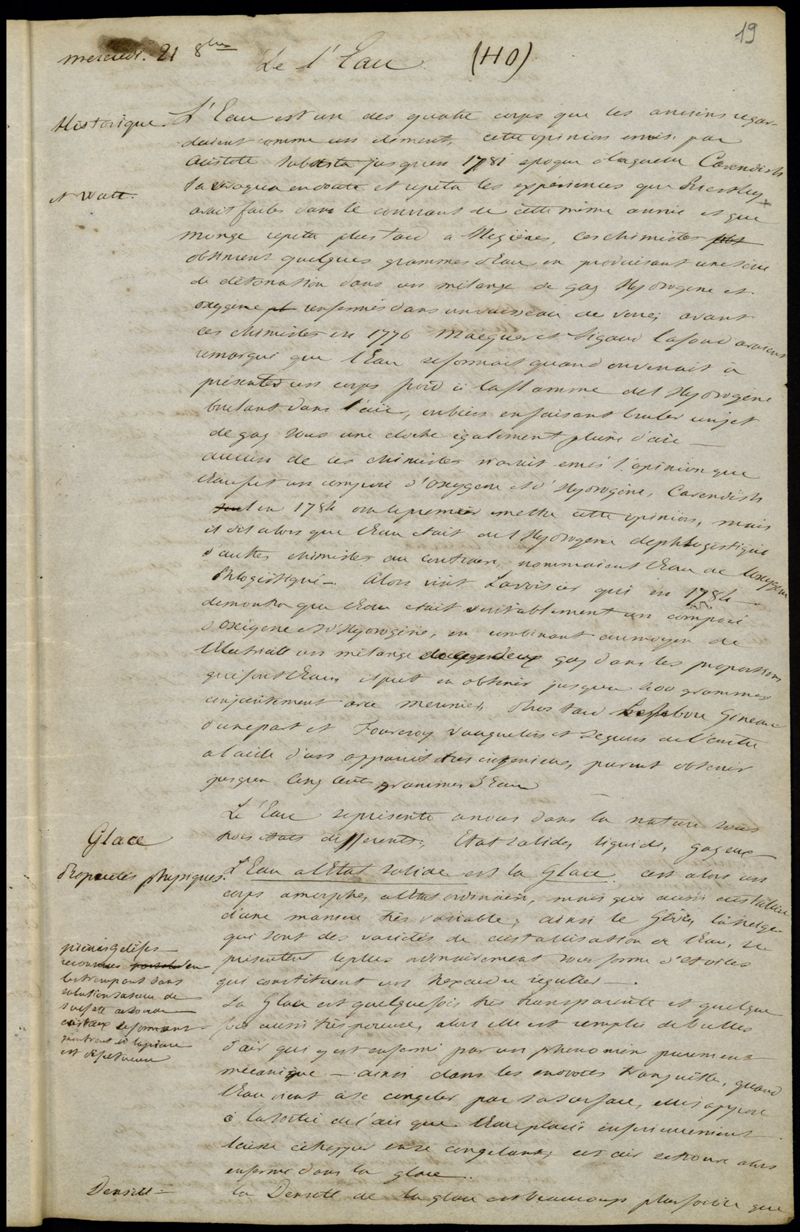 19
mercredi. 21 8bre De l'Eau. (HO)
Historique. L'Eau est un des quatre corps que les anciens regar-
daient comme un élément, cette opinion emise par
Aristote subsista jusqu'en 1781 epoque à laquelle Cavendish
la revoqua en doute et repeta les experiences que Priestley +
et Watt.
avait faites dans le courant de cette même année et que
Monge repeta plus tard à Mezières, ces chimistes
obtinrent quelques grammes d'Eau en produisant une serie
de détonation dans un mélange de gaz Hydrogène et
oxygène renfermés dans un vaisseau de verre; avant
ces chimistes en 1776 Macquer et Sigaud Lafond avaient
remarqué que l'Eau se formait quand on venait à
présenter un corps froid à la flamme de l'Hydrogène
brulant dans l'air, ou bien en faisant bruler un jet
de gaz sous une cloche également pleine d'air —
aucun de ces chimistes n'avait emis l'opinion que
l'Eau fut un composé d'Oxygène et d'Hydrogène, Cavendish
en 1784 osa le premier mettre cette opinion, mais
il dit alors que l'Eau etait de l'Hydrogène dephlogistiqué
d'autres chimistes au contraire, nommaient l'Eau de l'oxygène
Phlogistiqué — Alors vint Lavoisier qui en 1784
demontra que l'Eau etait veritablement un composé
d'oxigène et d'Hydrogène, en combinant au moyen de
l'Electricité un mélange gaz dans les proportions
qui font l'Eau, il put en obtenir jusqu'à 400 grammes
conjointement avec Meunier, Plus tard Lefebvre Gineau
d'une part et Fourcroy Vauquelin et Seguin de l'autre
a l'aide d'un appareil très ingénieux, purent obtenir
jusqu'à cinq cent grammes d'Eau
L'Eau se présente à nous dans la nature sous
trois états differents; Etat solide, liquide, gazeux
Glace
Propriétés physiques. L'Eau à l'Etat solide est la Glace. c'est alors un
corps amorphe, à l'état ordinaire, mais qui aussi cristallise
d'une manière très variable; ainsi le Givre, la neige
qui sont des variétés de cristallisation de l'Eau, se
présentent le plus ordinairement sous forme d'étoiles
qui constituent un Hexaedre régulier —.
pierres gelisses
reconnues en
les trempant dans
solution saturée de
sulfate de soude
cristaux se formant
montrent si la pierre
est défectueuse
La Glace est quelquefois très transparente et quelque
fois aussi très poreuse, alors elle est remplie de bulles
d'air qui y est enfermé par un phenomène purement
mécanique — ainsi dans les endroits tranquilles, quand
l'Eau vient à se congeler par sa surface, elle s'oppose
à la sortie de l'air que l'Eau placée inférieurement
laisse échapper en se congelant; cet air se trouve alors
enfermé dans la glace.
Densité — La Densité de la glace est beaucoup plus faible que